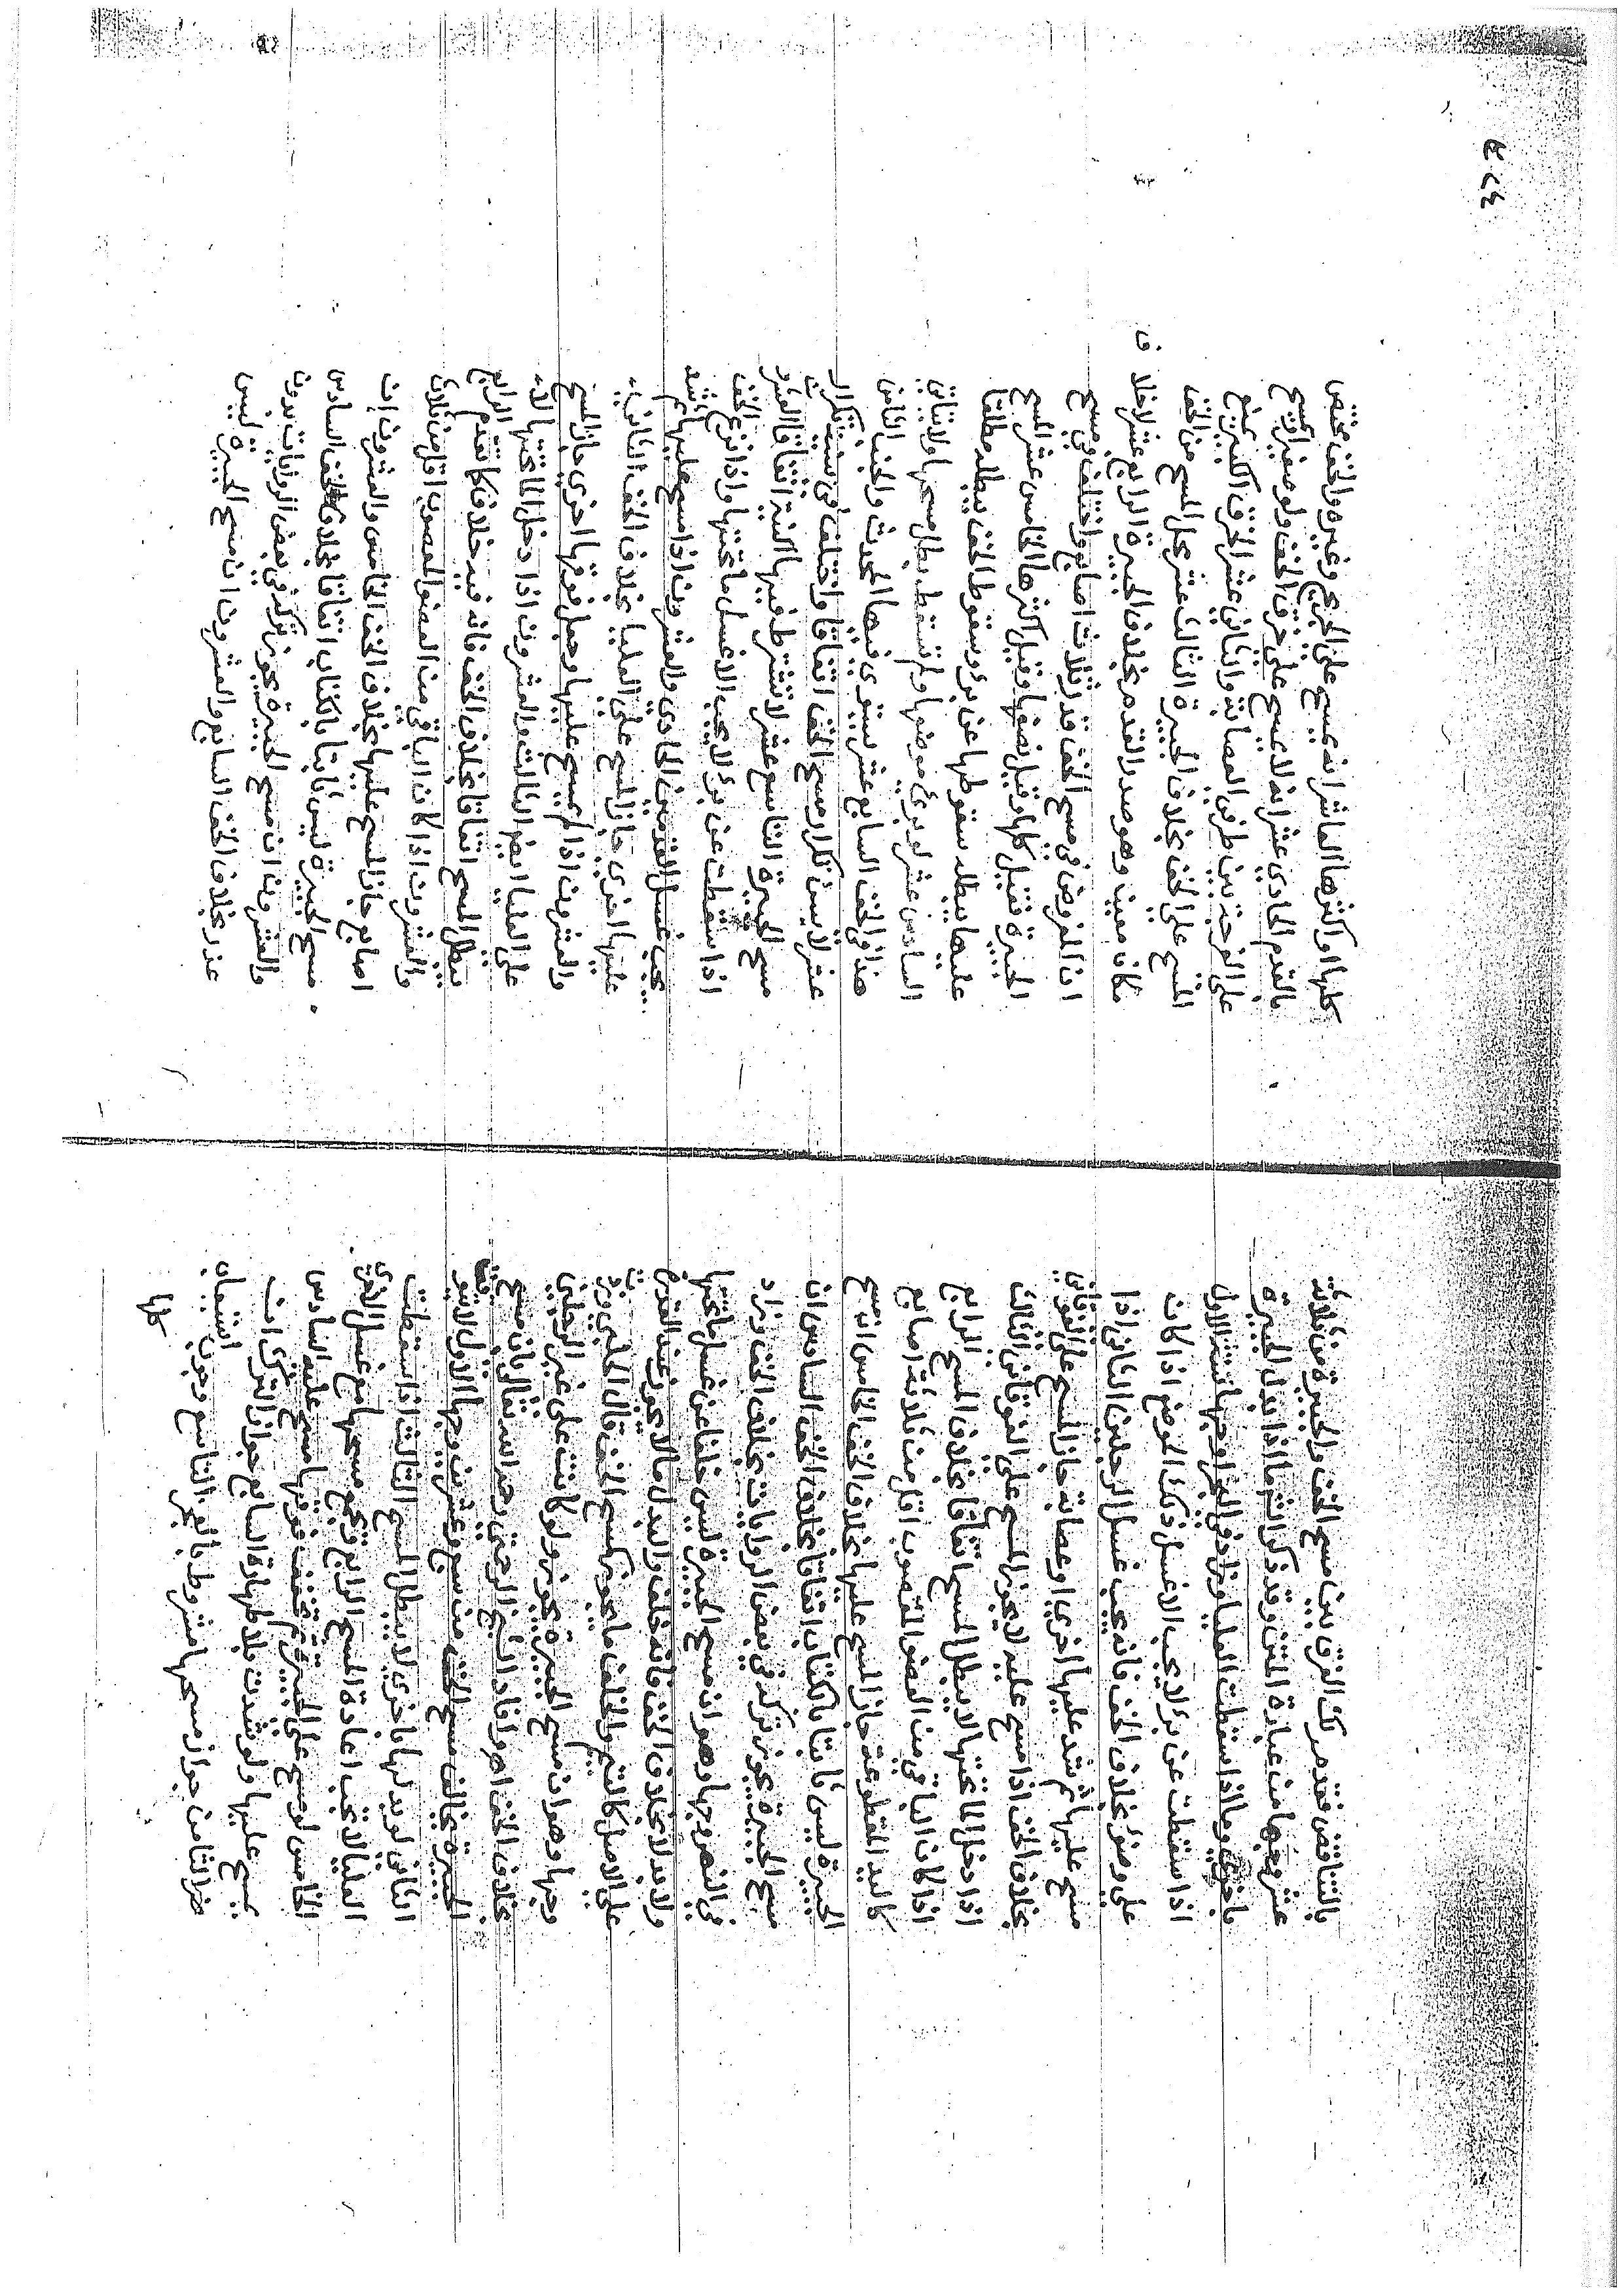 بالتناقض فتقدم ربك الفرق بين مسح الخف والجبيرة من ثلاثة
عشر وجها من عبارة المتن وقد ذكر الشرح ما اذا بدل الجبيرة
باخرى وما اذا سقطت العليا وزاد في البحر اوجها ستة الاول
اذا سقطت عن برء لا يجب الا غسل ذلك الموضع اذا كان
على وضوء بخلاف الخف فانه يجب غسل الرجلين الثاني اذا
مسح عليها ثم شد عليها اخرى او عصابة جاز المسح على الفوقاني
بخلاف الخف اذا مسح عليه لا يجوز المسح على الفوقاني الثالث
اذا دخل الماء تحتها لا يبطل المسح اتفاقا بخلاف المسح الرابع
اذا كان الباقي من العضو المعصوب اقل من ثلاثة اصابع
كاليد المقطوعة جاز المسح عليها بخلاف الخف الخامس ان مسح
الجبيرة ليس ثابتا بالكتاب اتفاقا بخلاف الخف السادس ان
مسح الجبيرة يجوز تركه في بعض الروايات بخلاف الخف وزاد
في النهر وجها وهو ان مسح الجبيرة ليس خلفا عن غسل ما تحتها
ولا بدلا بخلاف الخف فانه خلف والبدل ما لا يجوز عند القدرة
على الاصل كالتيمم والخلف ما يجوز كمسح الخف قال الحلبي وزدت
وجها وهو ان مسح الجبيرة يجوز ولو كانت على غير الرجلين
بخلاف الخف اهـ وافاد الشيخ الرحمتي رحمه الله تعالى بان مسح
الجبيرة يخالف مسح الخف من سبع وعشرين وجها الاول لا تتوقت
الثاني لو بدلها باخرى لا يبطل المسح الثالث اذا سقطت
العليا لا يجب اعادة المسح الرابع يجمع مسحها مع غسل الاخرى
الخامس لو مسح على الجبيرة ثم تخفف فوقها مسح عليه السادس
يمسح عليها ولو شدت بلا طهارة السابع جواز الترك ان
ضر الثامن جواز مسحها مشروط بالعجز التاسع وجوب استيعاب
كلها
كلها او اكثرها العاشر انه يمسح على الجرح وغيره والخف مختص
بالقدم الحادي عشر انه لا يمسح على خرق الخف ولو صغيرا ويمسح
على الفرجة بين طرفي العصابة والثاني عشر الخرق الكبير يمنع
المسح على الخف بخلاف الجبيرة الثالث عشر محل المسح من الخف
مكان معين وهو صدر القدم بخلاف الجبيرة الرابع عشر لا خلاف
ان المفروض في مسح الخف قدر ثلاث اصابع واختلف في مسح
الجبيرة فقيل كلها وقيل نصفها وقيل اكثرها الخامس عشر المسح
عليها يبطله سقوطها عن برء وسقوط الخف يبطله مطلقا
السادس عشر لو برئ موضعها ولم تسقط بطل مسحها ولا يتاتى
هذا في الخف السابع عشر يستوي فيها المحدث والجنب الثامن
عشر لا يسن تكرار مسح الخف اتفاقا واختلف في سنية تكرار
مسح الجبيرة التاسع عشر لا تشترط فيها النية اتفاقا العشرون
اذا سقطت عن برء لا يجب الا غسل ما تحتها واذا نزع الخف
يجب غسل القدمين الحادي والعشرون اذا مسح عليها ثم شد
عليها اخرى جاز المسح على العليا بخلاف الخف الثاني
والعشرون اذا لم يمسح عليها وجعل فوقها اخرى جاز المسح
على العليا ايضا الثالث والعشرون اذا دخل الماء تحتها لا
يبطل المسح اتفاقا بخلاف الخف فانه فيه خلاف كما تقدم الرابع
والعشرون اذا كان الباقي من العضو المعصوب اقل من ثلاث
اصابع جاز المسح عليها بخلاف الخف الخامس والعشرون ان
مسح الجبيرة ليس ثابتا بالكتاب اتفاقا بخلاف الخف السادس
والعشرون ان مسح الجبيرة يجوز تركه في بعض الروايات بدون
عذر بخلاف الخف السابع والعشرون ان مسح الجبيرة ليس